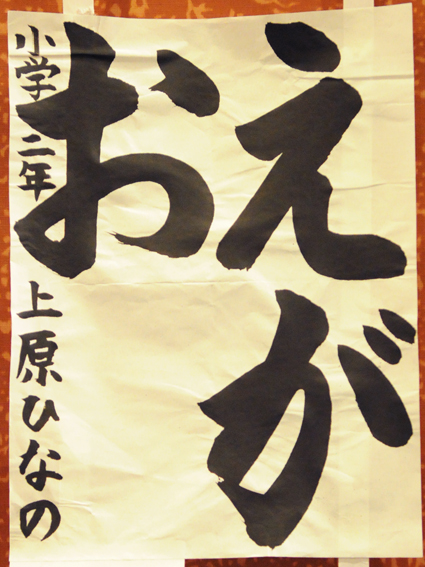 えが
お
小学二年 上原ひなの